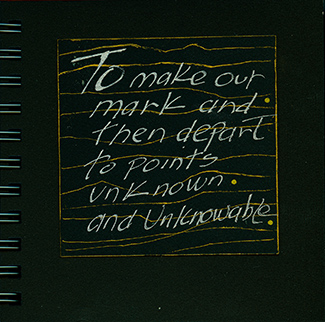 To make our
mark and
then depart
to points
unknown.
and Unknowable.